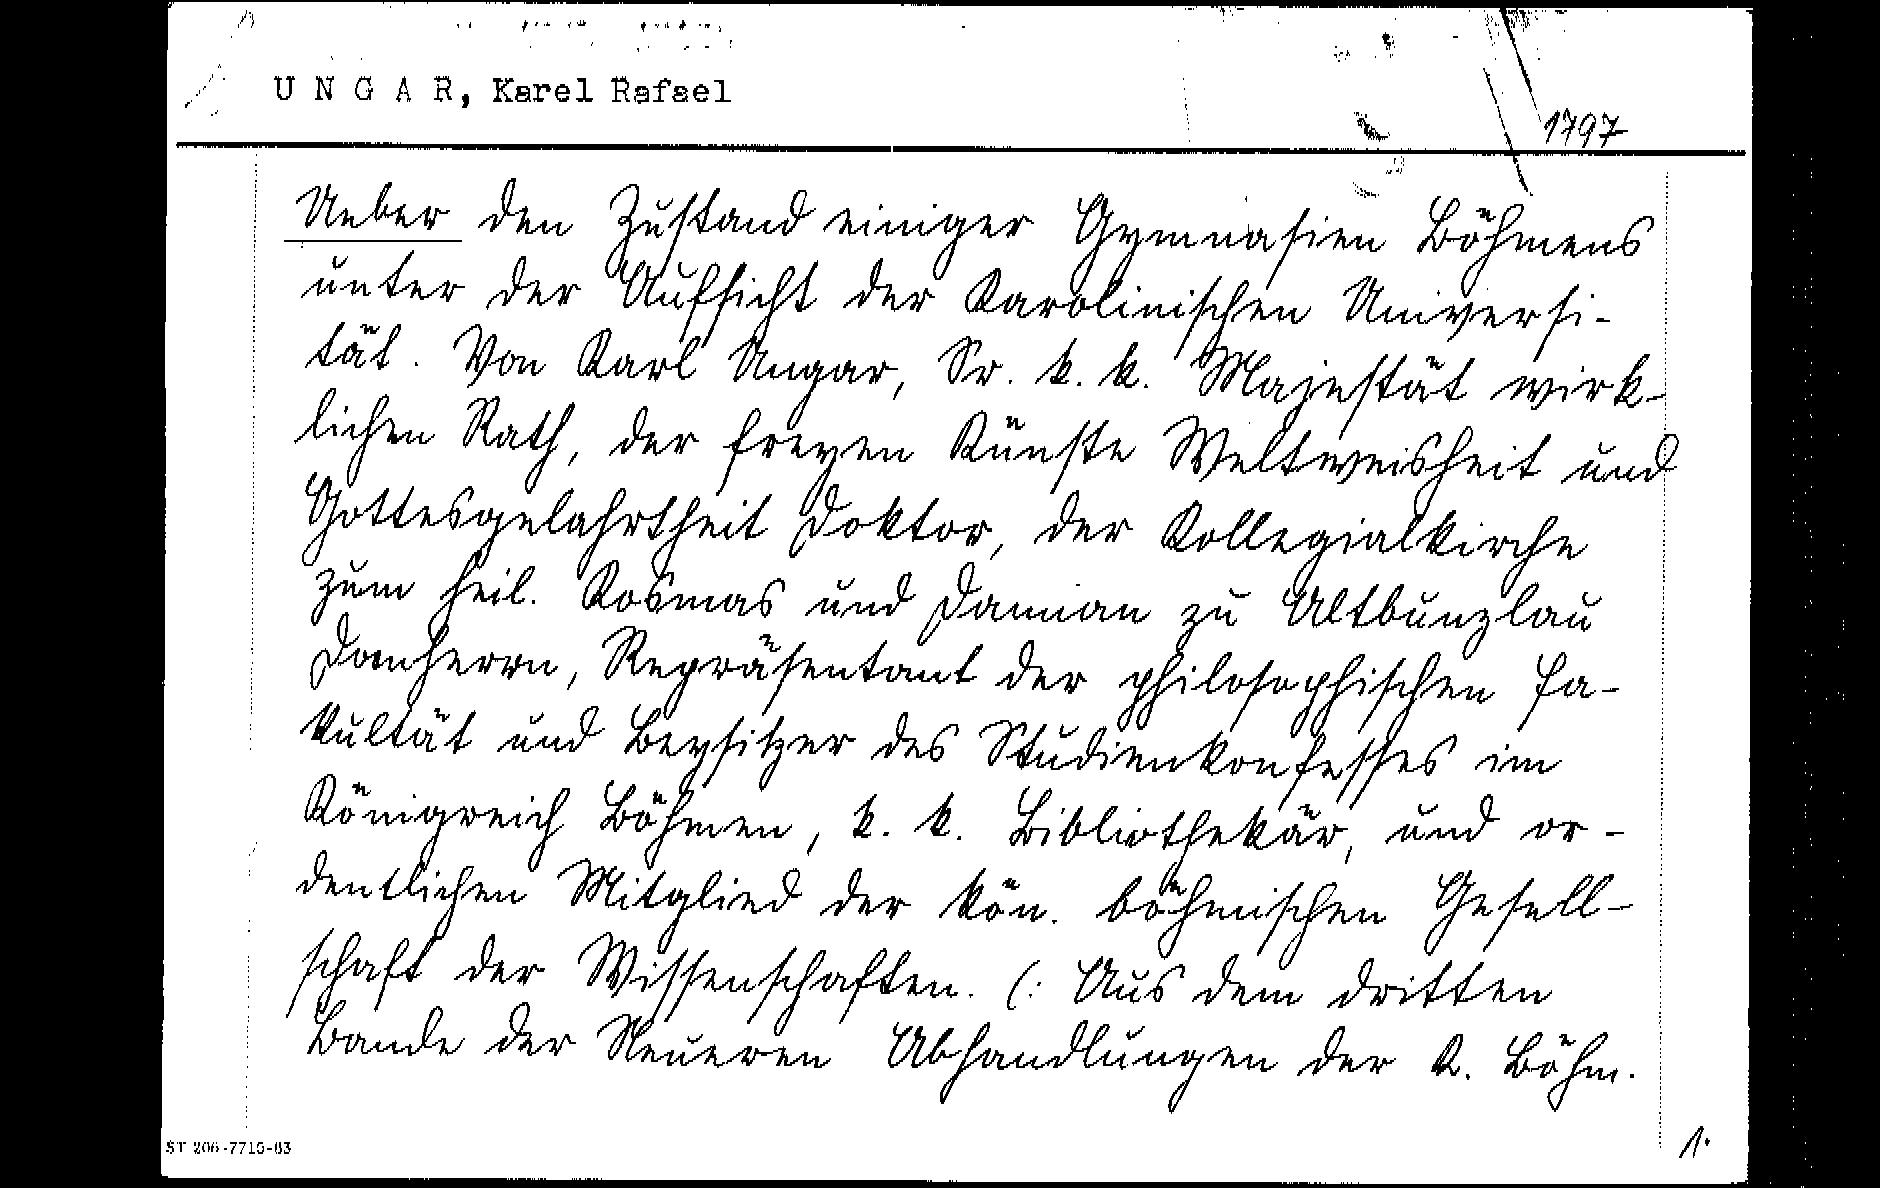 UNGAR, Karel Rafael
1797
Ueber den Zustand einiger Gymnasien Böhmens
unter der Aufsicht der Karolinischen Universi-
tät. Von Karl Ungar, Sr. k. k. Majestät wirk-
lichen Rath, der freyen Künste Weltweisheit und
Gottesgelahrtheit Doktor, der Kollegialkirche
zum heil. Kosmas und Damian zu Altbunzlau
Domherrn, Repräsentant der philosophischen Fa-
kultät und Beysitzer des Studienkonsesses im
Königreich Böhmen, k. k. Bibliothekär, und or-
dentlichen Mitglied der kön. böhmischen Gesell-
schaft der Wissenschaften. (: Aus dem dritten
Bande der Neueren Abhandlungen der K. Böhm.
ST 206-7715-63
1.